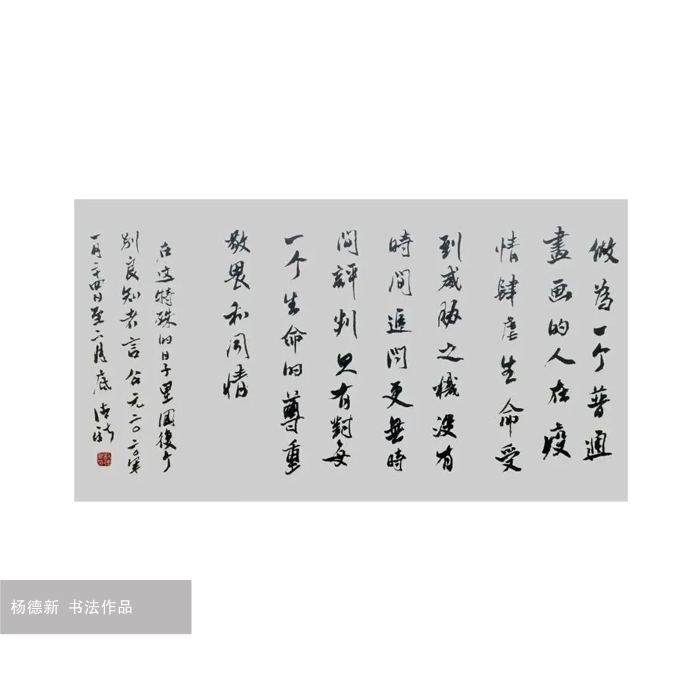 做為一个普通
畫画的人在疫
情肆虐生命受
到威胁之機沒有
時間追問更無時
間評判只有對每
一个生命的尊重
敬畏和同情
在这特殊的日子里圖復个
别良知者言公元二〇二〇年
一月二十四日至二月底德新
杨德新 书法作品